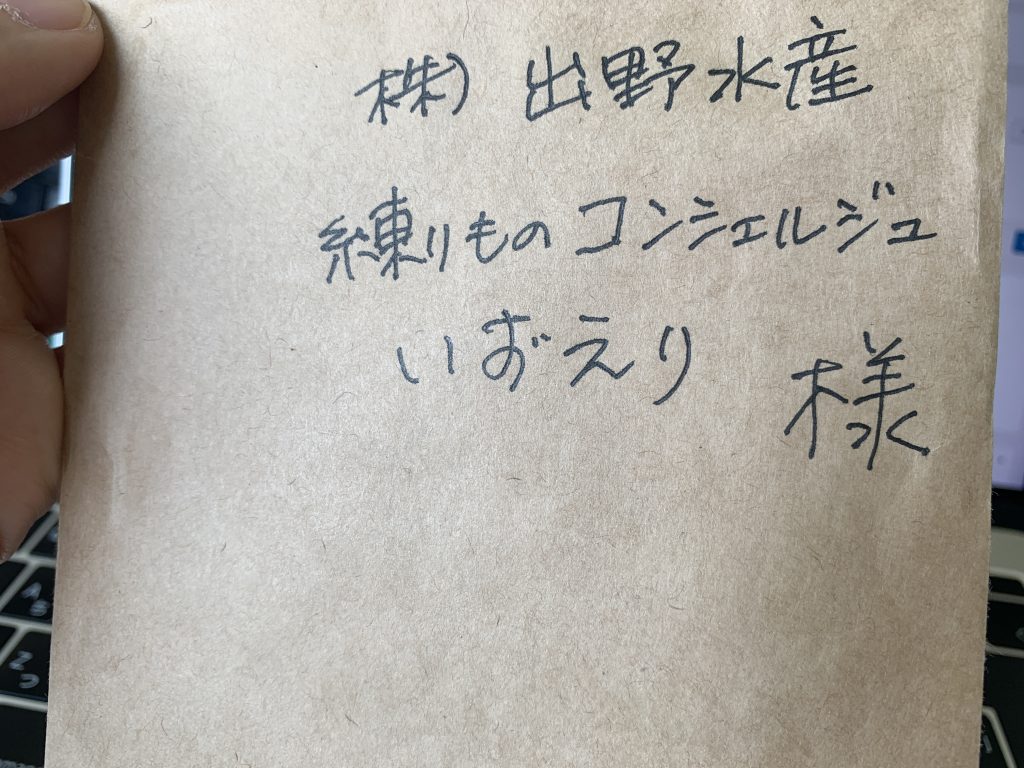 株) 出野水産
練りものコンシェルジュ
いずえり 様